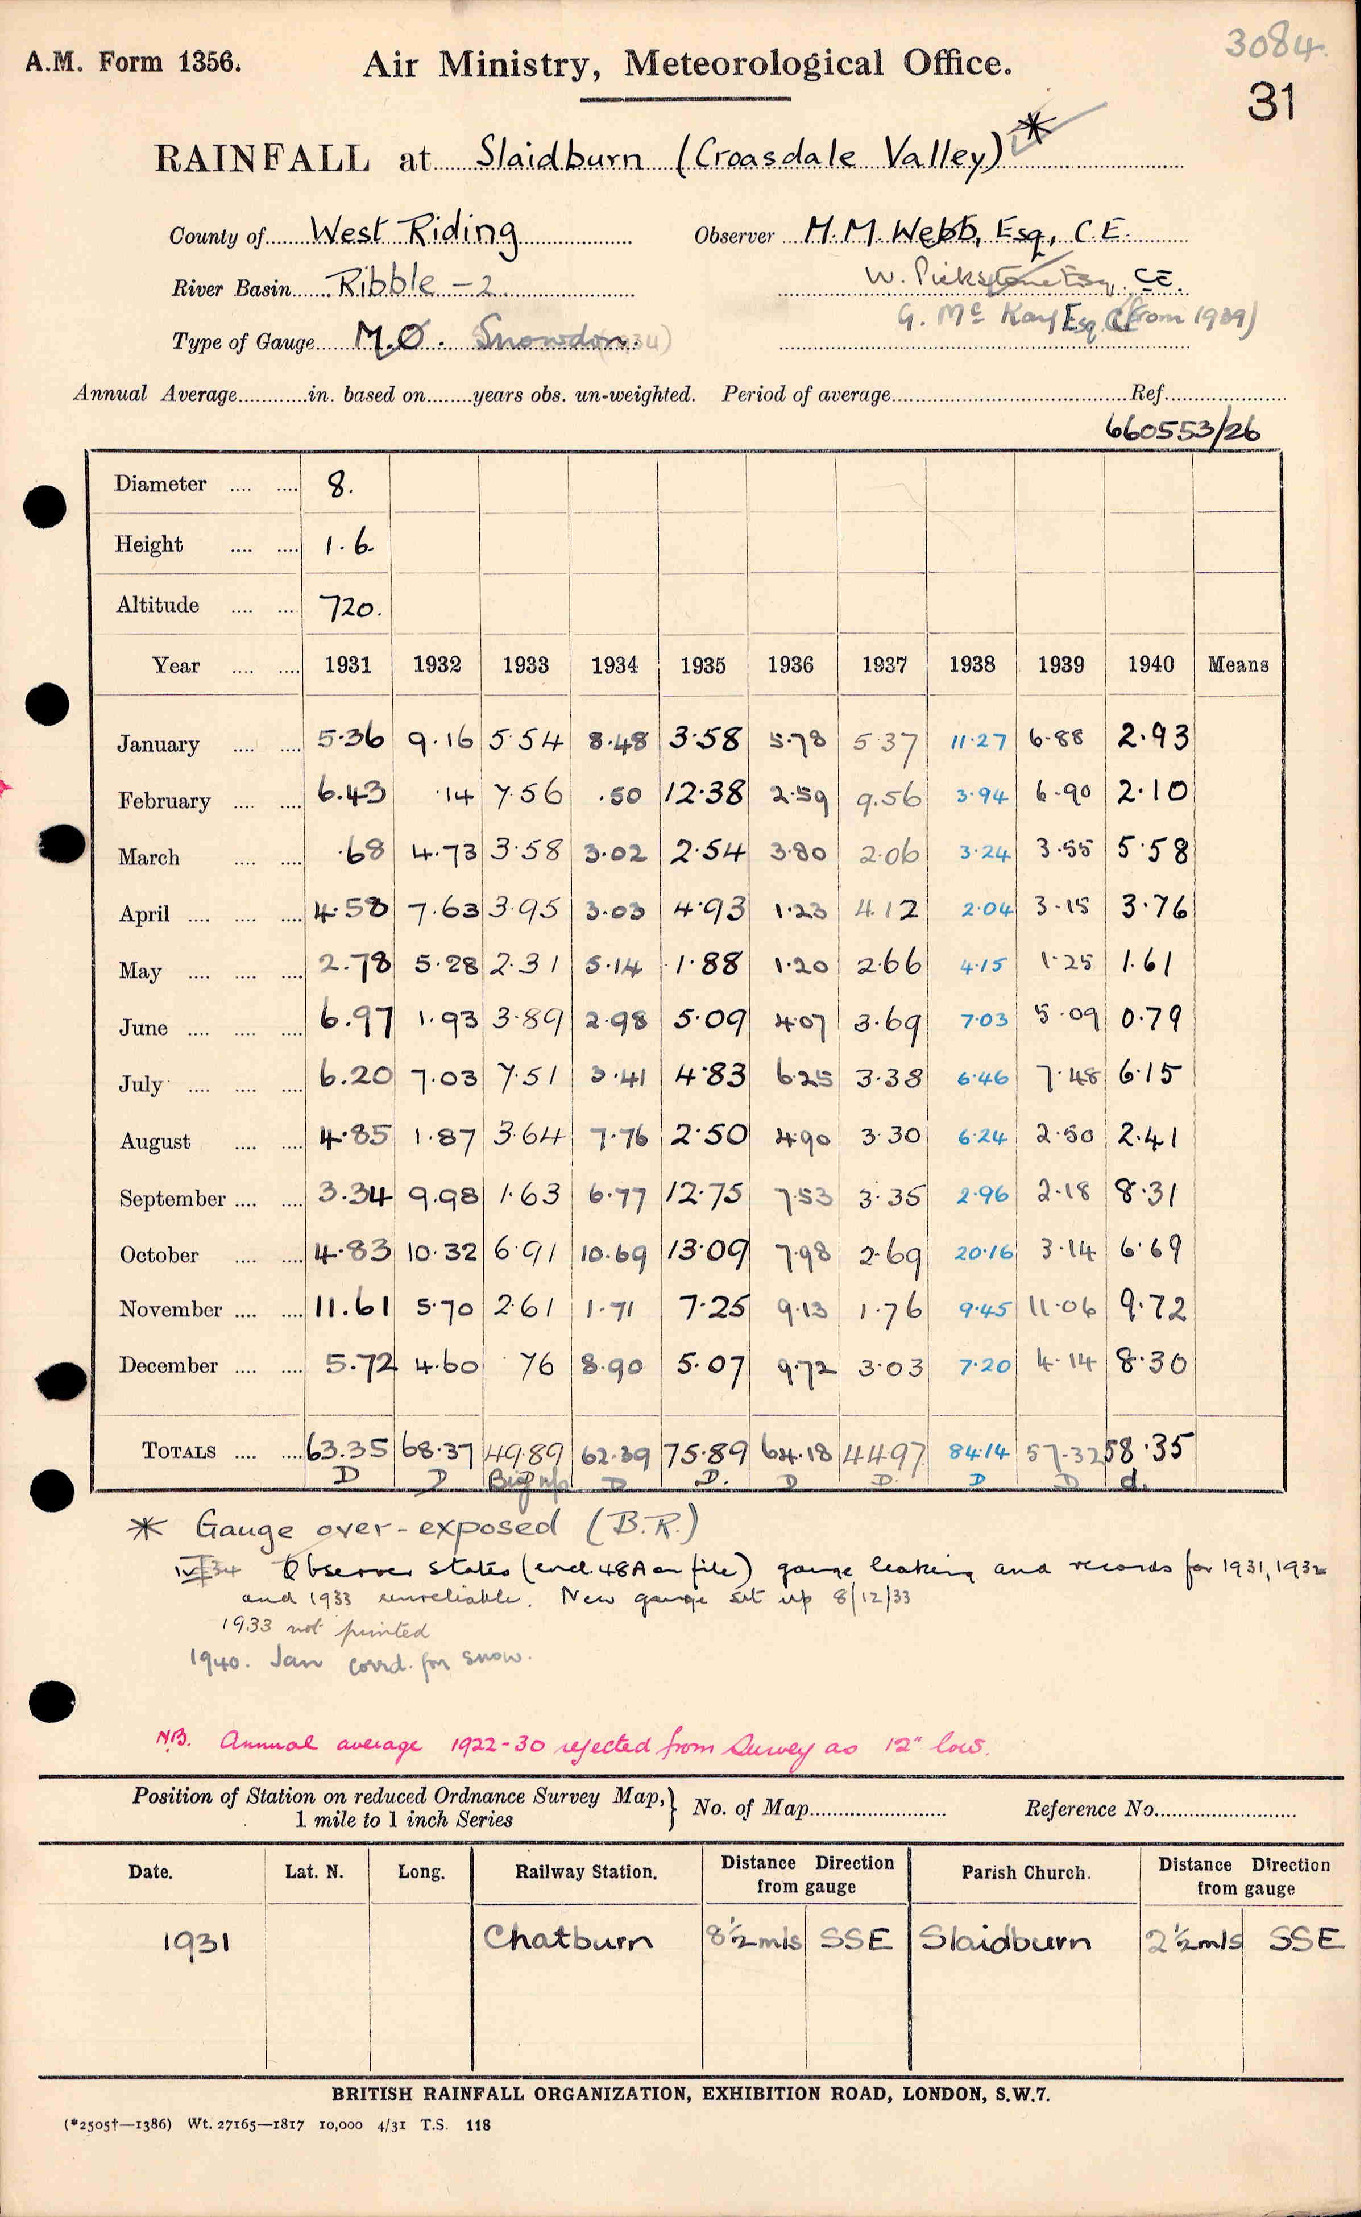 3084
A.M. Form 1356. Air Ministry, Meteorological Office.
31
RAINFALL at Slaidburn (Croasdale Valley) *
County of West Riding Observer M.M. Webb, Esq, C.E.
River Basin Ribble - 2 W. Pickstone Esq. C.E.
G. Mc Kay Esq. CE (from 1939)
Type of Gauge M.O. Snowdon. (1934)
Annual Average in. based on years obs. un-weighted. Period of average Ref.
660553/26
Diameter 8.
Height 1.6
Altitude 720.
Year 1931 1932 1933 1934 1935 1936 1937 1938 1939 1940 Means
January 5.36 9.16 5.54 8.48 3.58 5.78 5.37 11.27 6.88 2.93
February 6.43 .14 7.56 .50 12.38 2.59 9.56 3.94 6.90 2.10
March .68 4.73 3.58 3.02 2.54 3.80 2.06 3.24 3.55 5.58
April 4.58 7.63 3.95 3.03 4.93 1.23 4.12 2.04 3.15 3.76
May 2.78 5.28 2.31 5.14 1.88 1.20 2.66 4.15 1.25 1.61
June 6.97 1.93 3.89 2.98 5.09 4.07 3.69 7.03 5.09 0.79
July 6.20 7.03 7.51 3.41 4.83 6.25 3.38 6.46 7.48 6.15
August 4.85 1.87 3.64 7.76 2.50 4.90 3.30 6.24 2.50 2.41
September 3.34 9.98 1.63 6.77 12.75 7.53 3.35 2.96 2.18 8.31
October 4.83 10.32 6.91 10.69 13.09 7.98 2.69 20.16 3.14 6.69
November 11.61 5.70 2.61 1.71 7.25 9.13 1.76 9.45 11.06 9.72
December 5.72 4.60 .76 8.90 5.07 9.72 3.03 7.20 4.14 8.30
TOTALS 63.35 68.37 49.89 62.39 75.89 64.18 44.97 84.14 57.32 58.35
D D D D. D D. D D d.
* Gauge over-exposed (B.R.)
Observer states (encl 48A on file) gauge leaking and records for 1931, 1932
and 1933 unreliable. New gauge set up 8/12/33
1933 not printed
1940. Jan corrd. for snow.
NB. Annual average 1922-30 rejected from Survey as 12" low.
Position of Station on reduced Ordnance Survey Map, } No. of Map Reference No.
1 mile to 1 inch Series
Date. Lat. N. Long. Railway Station. Distance Direction Parish Church. Distance Direction
from gauge from gauge
1931 Chatburn 8½ mls SSE Slaidburn 2½ mls SSE
BRITISH RAINFALL ORGANIZATION, EXHIBITION ROAD, LONDON, S.W.7.
(*2505†—1386) Wt. 27165—1817 10,000 4/31 T.S. 118